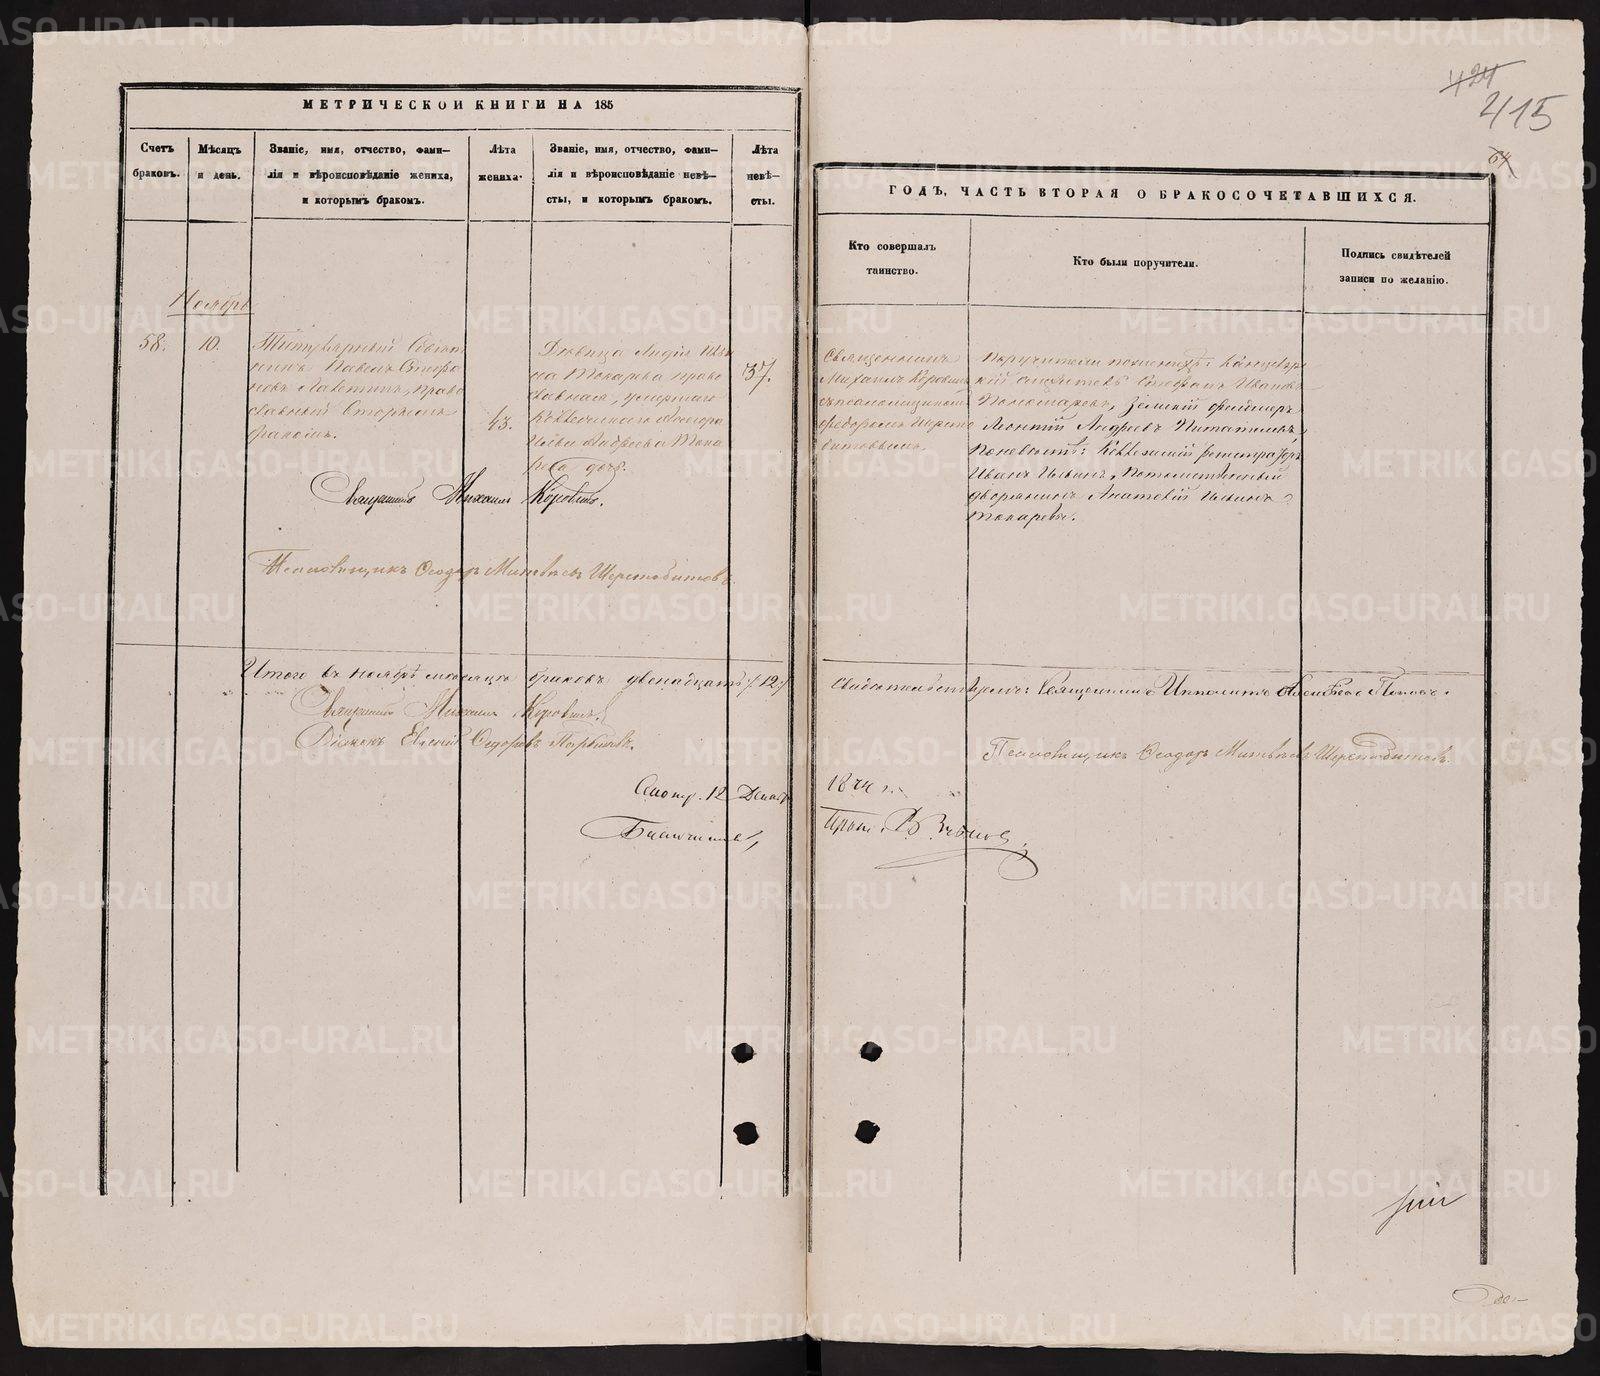 МЕТРИЧЕСКОЙ КНИГИ НА 185
Счетъ браковъ.
Мѣсяцъ и день.
Званіе, имя, отчество, фами-
лія и вѣроисповѣданіе жениха,
и которымъ бракомъ.
Лѣта жениха.
Званіе, имя, отчество, фами-
лія и вѣроисповѣданіе невѣ-
сты, и которымъ бракомъ.
Лѣта невѣ-
сты.
Ноябрь
58.
10.
Титулярный Совѣт
никъ Павелъ Стефа
новъ Лаветинъ, право
славный вторымъ
бракомъ.
43.
Дѣвица Лидія Ива
на Токарева право
славная, умершаго
Коллежскаго
Андреева Тока
рева дочь.
37.
Священникъ Михаилъ Коровинъ.
Псаломщикъ Ѳеодоръ Матвѣевъ Шерстобитовъ
Итого въ ноябрѣ мѣсяцѣ браковъ двенадцать /.12./
Священникъ Михаилъ Коровинъ.
Діаконъ Евгеній Ѳедоровъ
12 Декаб
Благочин
424
415
64
ГОДЪ, ЧАСТЬ ВТОРАЯ О БРАКОСОЧЕТАВШИХСЯ.
Кто совершалъ
таинство.
Кто были поручители.
Подпись свидѣтелей
записи по желанію.
Священникъ
Михаилъ Коровинъ
съ псаломщикомъ
Ѳедоромъ Шерсто
битовымъ.
Поручители по женихѣ: Канцеляр
кій служитель Стефанъ Ивановъ
Пономаревъ, Земскій фельдшеръ
Леонтій Андреевъ
По невѣстѣ: Коллежскій регистраторъ
Иванъ Ильинъ, Потомственный
дворянинъ Анатолій Ильинъ
Токаревы.
Свидѣтельствуемъ: Священникъ Ипполитъ Алексѣевъ Поповъ.
Псаломщикъ Ѳеодоръ Матвѣевъ Шерстобитовъ
1874 г.
Прот.
METRIKI.GASO-URAL.RU